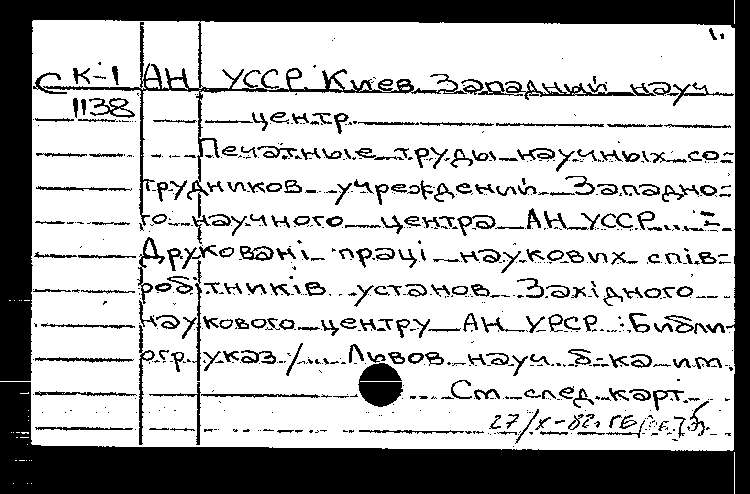 1.
С К-1 АН УССР. Киев. Западный науч
1138 центр.
Печатные труды научных со-
трудников учреждений Западно-
го научного центра АН УССР... =
Друковані праці наукових спів-
робітників установ Західного
наукового центру АН УРСР : Библи-
огр. указ / ... Львов. науч. б-ка им.
... См. след. карт.
27/X-82г. ГБ